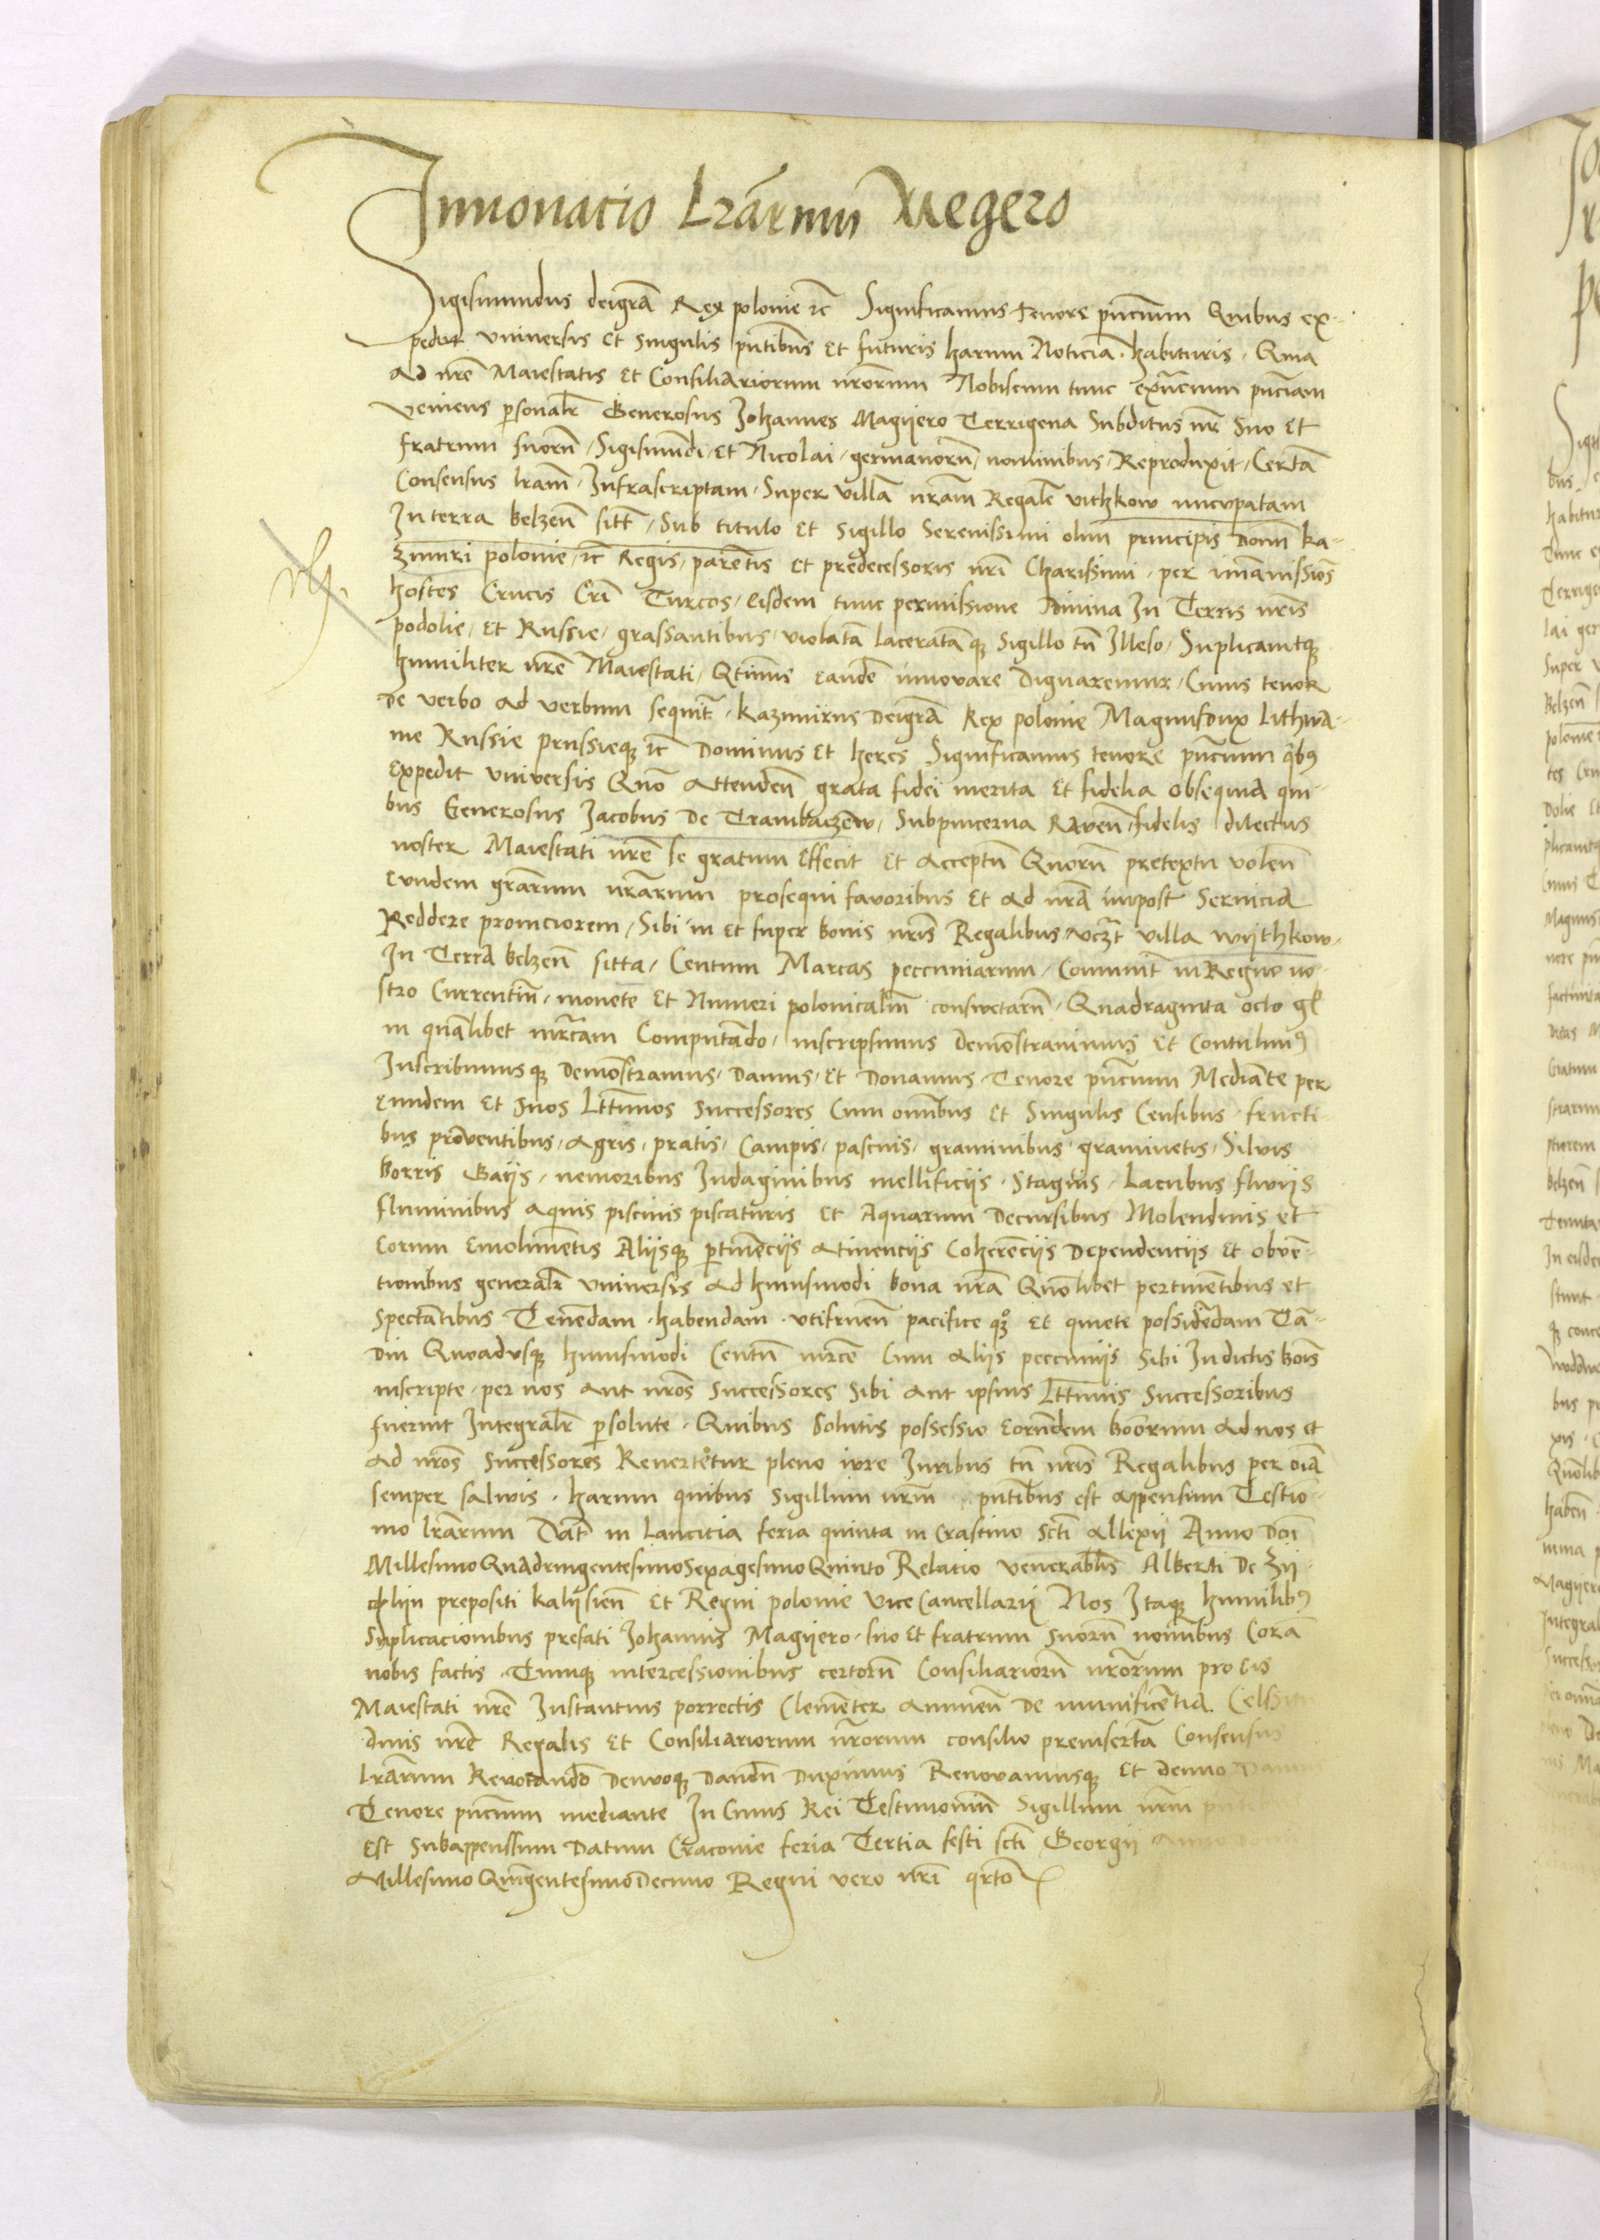 Innovatio Lrarum Megero
Sigismundus deigra Rex polonie zc Significamus tenore pncium Quibus ex-
pedit universis et singulis pntibus et futuris harum Noticia habituris. Quia
ad nre Maiestatis et Consiliariorum nrorum Nobiscum tunc exncium pnciam
veniens personalr Generosus Johannes Magyero Terrigena Subditus nr Suo et
fratrum suoru Sigismundi et Nicolai germanoru nominibus Reproduxit Certa
Consensus lram Infrascriptam Super villa nram Regale vithkow nucupatam
In terra belzen sitt Sub titulo et Sigillo Serenissimi olim principis Domi ka-
zimiri polonie zc Regis parentis et predecessoris nri Charissimi per
hostes Crucis Cri Turcos eisdem tunc permissione divina In Terris nris
podolie et Russie grassantibus violata lacerataq Sigillo tn Illeso Suplicavitq
humiliter nre Maiestati Qtinus eande innovare dignaremur Cuius tenor
de verbo ad verbum sequit Kazimirus deigra Rex polonie Magnus dux Lithua-
nie Russie prussieq zc Dominus et heres Significamus tenore pncium qbus
expedit universis Quo attenden grata fidei merita et fidelia obsequia qui-
bus Generosus Jacobus de Trambaczew Subpincerna Raven fidelis dilectus
noster Maiestati nre se gratum effecit et acceptu Quoru pretextu volen
eundem grarum nrarum prosequi favoribus et ad nra inpost Servicia
Reddere promciorem Sibi in et super bonis nris Regalibus vczt villa wythkow
In Terra belzen sitta Centum Marcas pecuniarum Comunit in Regno no-
stro Currentiu monete et Numeri polonicalim consuetaru Quadraginta octo gl
in qualibet mrcam Computado inscripsimus demostravimus et Contulimus
Inscribimusq demostramus damus et donamus Tenore pncium Mediante per
eundem et suos Lttimos successores Cum omibus et Singulis Censibus fructi-
bus proventibus agris pratis Campis pascuis graminibus graminetis Silvis
borris Gaiis nemoribus Indaginibus mellificiis Stagnis Lacubus fluviis
fluminibus aquis piscinis piscaturis et Aquarum decursibus Molendinis et
eorum emolimentis Aliisq ptinenciis atinenciis Coherenciis dependenciis et obve-
tionibus generalr universis ad huiusmodi bona nra Quolibet pertinetibus et
spectatibus Tenedam habendam utifruen pacifice qz et quiete posidedam Ta-
diu Quoadusq huiusmodi Centu mrce Cum aliis pecuniis Sibi In dictis bois
inscripte per nos aut nros successores Sibi aut ipsius Lttimis Successoribus
fuerint Integralr psolute Quibus Solutis possessio eorundem boorum ad nos et
ad nros Successores Revertetur pleno iure Iuribus tn nris Regalibus per oia
semper salvis harum quibus Sigillum nrm pntibus est appensum Testio-
nio lrarum Dat in Lancicia feria quinta in Crastino Scti Allexii Anno Doi
Millesimo Quadringentesimo Sexagesimo Quinto Relatio venerablis Alberti de Zy-
chlyn prepositi kalysien et Regni polonie Vice Cancellarii Nos Itaq humilibus
Suplicacionibus prefati Johannis Magyero suo et fratrum suoru nomibus Cora
nobis factis Tumq intercessionibus certoru Consiliarioru nrorum pro eis
Maiestati nre Instantius porrectis Clementer annuen de munificetia Celsitu
dinis nre Regalis et Consiliariorum nrorum consilio preinserta Consensus
Lrarum Renovando denuoq dandu duximus Renovamusq et denuo Damus
Tenore pncium mediante In Cuius Rei Testimoniu Sigillum nrm
est Subappensum Datum Cracovie feria Tertia festi scti Georgii Anno
Millesimo Quingentesimo Decimo Regni vero nri qrto